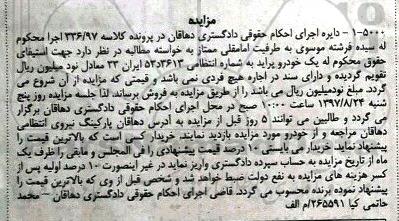 مزایده
۵۰۰۰-۱- دایره اجرای احکام حقوقی دادگستری دهاقان در پرونده کلاسه ۳۳۶/۹۷ اجرا محکوم
له سیده فرشته موسوی به طرفیت امامقلی ممتاز به خواسته مطالبه در نظر دارد جهت استیفای
حقوق محکوم له یک خودرو پراید به شماره انتظامی ایران ۲۳ معادل نود میلیون ریال
تقویم گردیده و دارای سند در اجاره هیچ فردی نمی باشد و قیمتی که مزایده از آن شروع می
گردد، مبلغ نودمیلیون ریال می باشد را از طریق مزایده به فروش برساند. لذا جلسه مزایده روز پنج
شنبه ۱۳۹۷/۸/۲۴ ساعت ۱۰:۰۰ صبح در محل اجرای احکام حقوقی دادگستری دهاقان برگزار
می گردد و طالبین می توانند ۵ روز قبل از مزایده به آدرس دهاقان پارکینگ نیروی انتظامی
دهاقان مراجعه و از خودرو مورد مزایده بازدید نمایند. خریدار کسی است که بالاترین قیمت را
پیشنهاد نماید. خریدار می بایستی ۱۰ درصد قیمت پیشنهادی را فی المجلس و مابقی را ظرف یک
ماه از تاریخ مزایده به حساب سپرده دادگستری واریز نماید در غیر اینصورت ۱۰ درصد اولیه پس از
کسر هزینه های مزایده به نفع دولت ضبط خواهد شد و شخص قبل از وی که بالاترین قیمت را
پیشنهاد نموده برنده محسوب می گردد. قاضی اجرای احکام حقوقی دادگستری دهاقان – محمد
حاتمی ۲۶۵۵۹۱/م الف